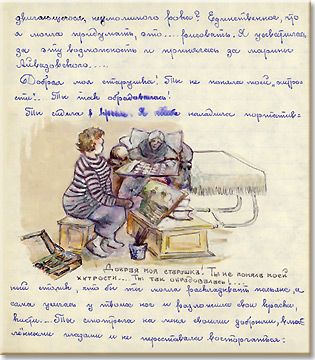 двигающегося, неумолимого рока? Единственное, что
я могла придумать, это.... рисовать. Я ухватилась
за эту возможность и принялась за марины
Айвазовского....
Добрая моя старушка! Ты не поняла моей хитро-
сти!.. Ты так обрадовалась!
Ты сидела в Я наладила портатив-
Добрая моя старушка! Ты не поняла моей
хитрости... Ты так обрадовалась!...
ный столик, что бы ты могла раскладывать пасьянс, а
сама уселась у твоих ног и разложила свои краски,
кисти... Ты смотрела на меня своими добрыми,
глазами и не переставала восторгаться: